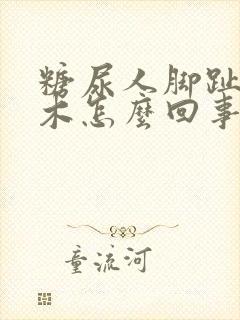 糖尿人脚趾
木怎麽回事
童流河